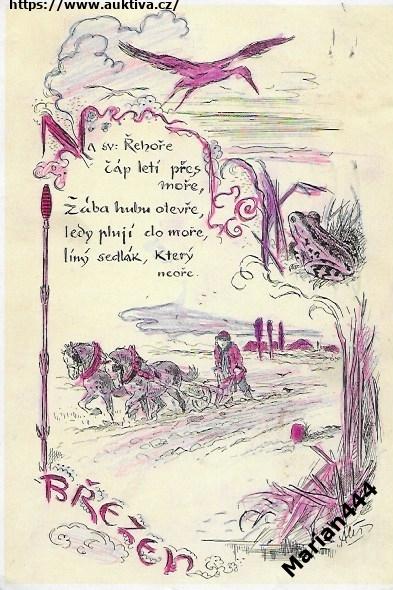 https://www.auktiva.cz/
Na sv: Řehoře
čáp letí přes
moře,
Žába hubu otevře,
ledy plují do moře,
líný sedlák, Který
neoře.
BŘEZEN
Marian444